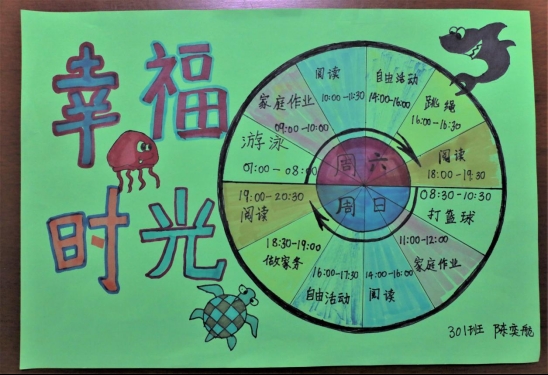 幸福
时光
周六
游泳
07:00-08:00
家庭作业
09:00-10:00
阅读
10:00-11:30
自由活动
14:00-16:00
跳绳
16:00-16:30
阅读
18:00-19:30
周日
08:30-10:30
打篮球
11:00-12:00
家庭作业
14:00-16:00
阅读
16:00-17:30
自由活动
18:30-19:00
做家务
19:00-20:30
阅读
301班 陈奕